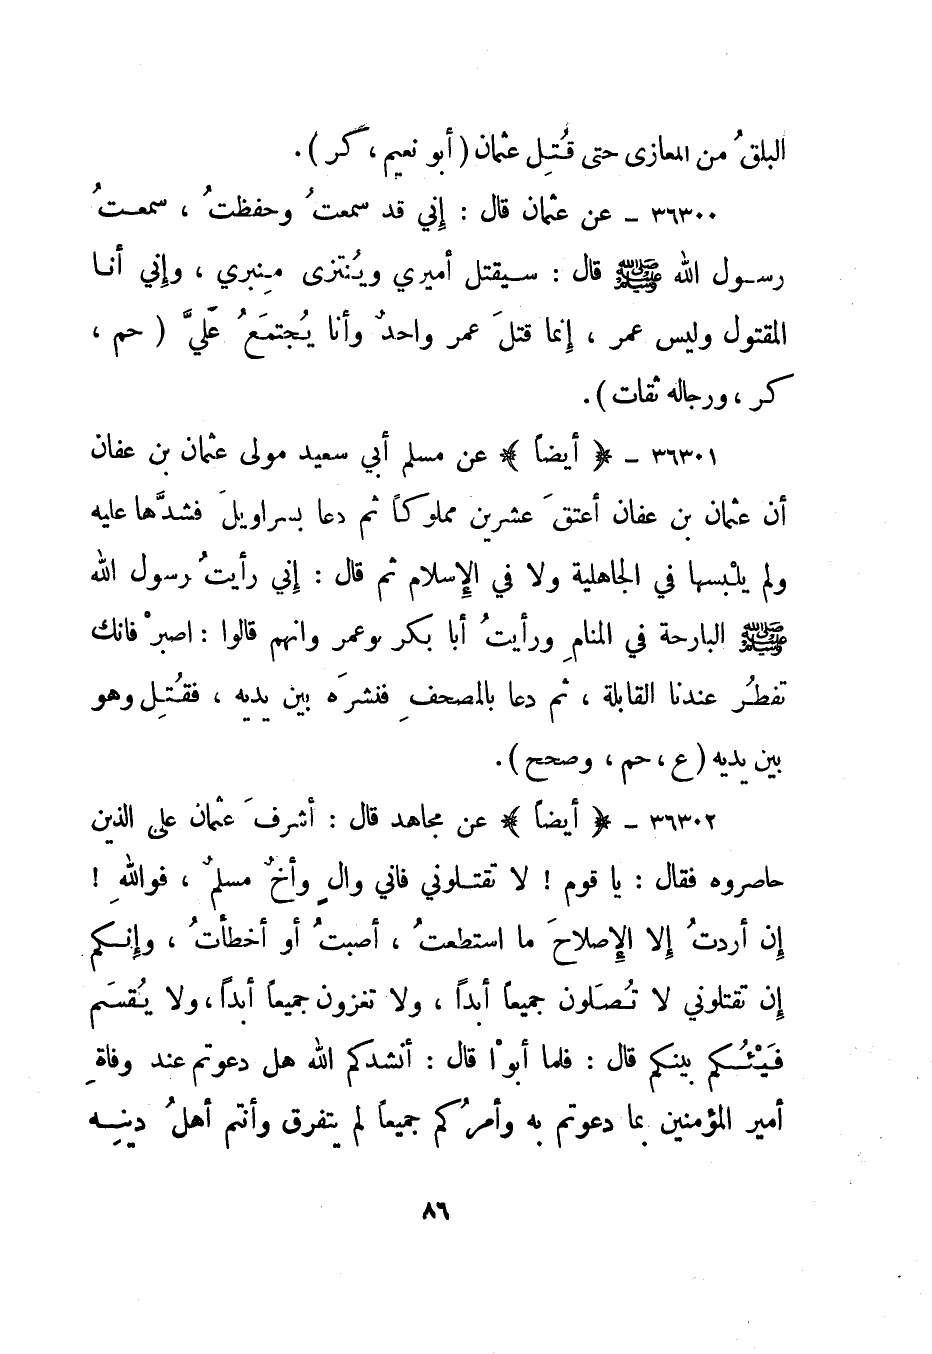 البلقُ من المعازى حتى قُتِل عثمان (أبو نعيم ، كر ).
٣٦٣٠٠ ـ عن عثمان قال : إني قد سمعتُ وحفظتُ ، سمعتُ
رسول الله ﷺ قال : سيقتل أميري ويُنتزى مِنبري ، وإني أنا
المقتول وليس عمر ، إنما قتلَ عمر واحدٌ وأنا يُجتمَعُ عَليَّ ( حم ،
كر ، ورجاله ثقات ).
٣٦٣٠١ ـ ﴿ أيضاً ﴾ عن مسلم أبي سعيد مولى عثمان بن عفان
أن عثمان بن عفان أعتقَ عشرين مملوكاً ثم دعا بسراويلَ فشدَّها عليه
ولم يلْبسها في الجاهلية ولا في الإسلام ثم قال : إني رأيتُ رسول الله
ﷺ البارحة في المنامِ ورأيتُ أبا بكر وعمر وانهم قالوا : اصبرْ فانك
تفطرُ عندنا القابلة ، ثم دعا بالمصحفِ فنشرَه بين يديه ، فقُتِل وهو
بين يديه ( ع ، حم ، وصحح ).
٣٦٣٠٢ ـ ﴿ أيضاً ﴾ عن مجاهد قال : أشرفَ عثمان على الذين
حاصروه فقال : يا قوم ! لا تقتلوني فاني والٍ وأخٌ مسلمٌ ، فواللهِ !
إن أردتُ إلا الإصلاحَ ما استطعتُ ، أصبتُ أو أخطأتُ ، وإنكم
إن تقتلوني لا تُصَلون جميعاً أبداً ، ولا تغزون جميعاً أبداً ، ولا يُقسَم
فَيْئُكم بينكم قال : فلما أبوْا قال : أنشدكم الله هل دعوتم عند وفاةِ
أمير المؤمنين بما دعوتم به وأمرُكم جميعاً لم يتفرق وأنتم أهلُ دينِه
٨٦